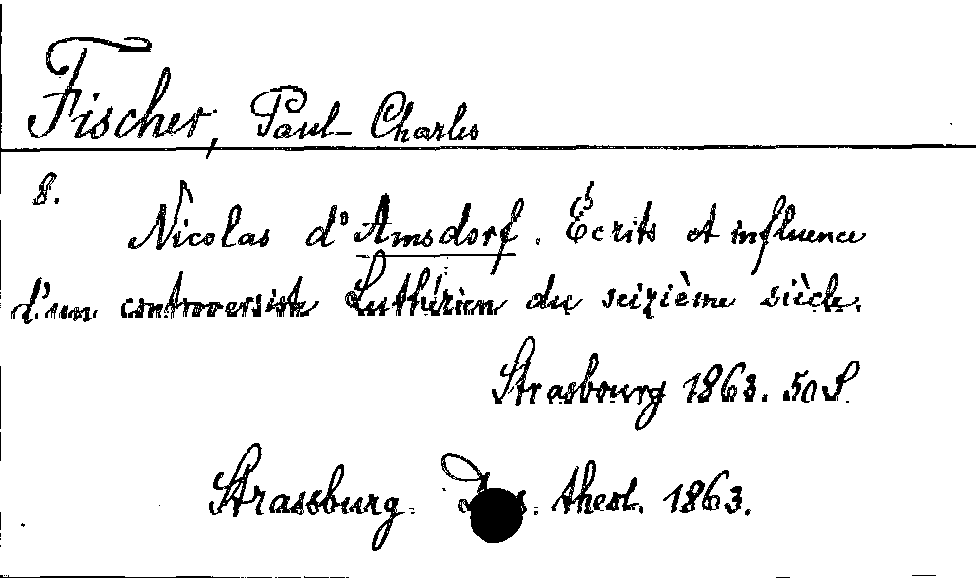 Fischer, Paul Charles
8.
Nicolas d'Amsdorf. Écrits et influence
d'un controversiste Luthérien du seizième siècle.
Strasbourg 1863. 50 S.
Strassburg. theol. 1863.